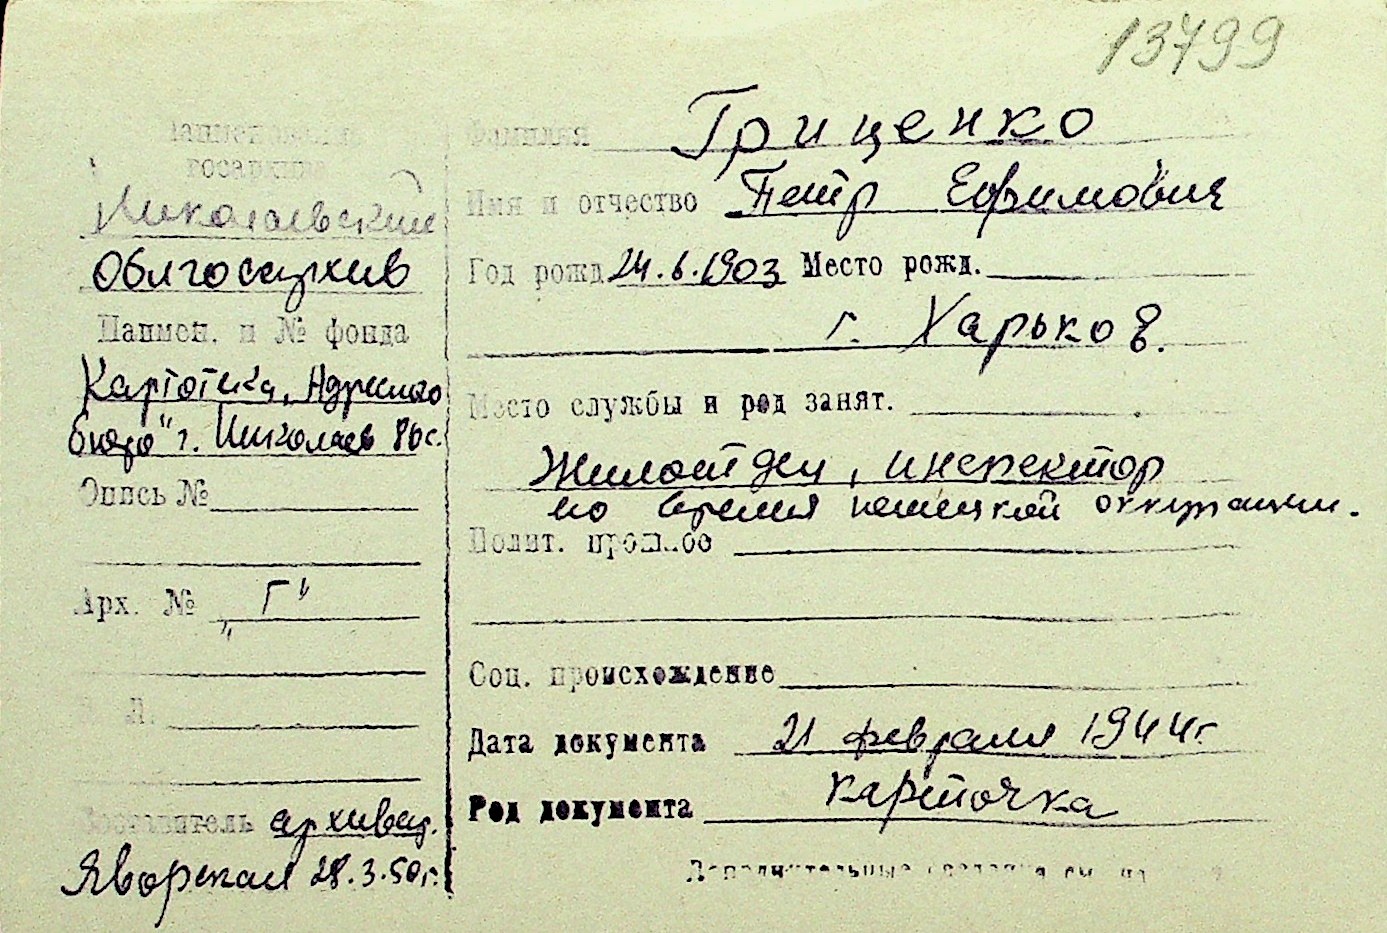 13799
Наименование
госархива
Николаевский
Облгосархив
Наимен. и № фонда
Картотека „Адресного
бюро" г. Николаев
Опись №
Арх. № „Г"
Л.
Составитель архивар.
Яворская 28.3.50г.
Фамилия Гриценко
Имя и отчество Петр Ефимович
Год рожд. 24.6.1903 Место рожд.
г. Харьков.
Место службы и род занят.
Жилотдел, инспектор
во время немецкой оккупации.
Полит. прошлое
Соц. происхождение
Дата документа 21 февраля 1944г.
Род документа карточка
Дополнительные сведения см. на